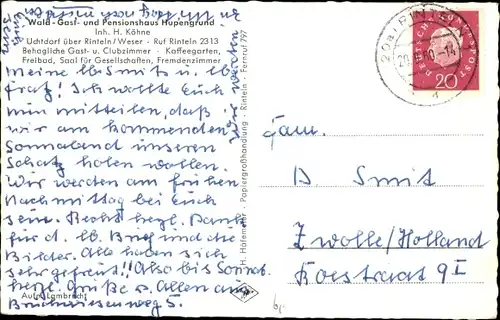 Wald- Gast- und Pensionshaus Hupengrund
Inh. H. Köhne
Uchtdorf über Rinteln/Weser - Ruf Rinteln 2313
Behagliche Gast- u. Clubzimmer - Kaffeegarten,
Freibad, Saal für Gesellschaften, Fremdenzimmer
Meine lb. Smits u. lb.
Ich wollte Euch
nun mitteilen, daß
wir am kommenden
Sonnabend unseren
Schatz holen wollen.
Wir werden am frühen
Nachmittag bei Euch
sein. Recht herzl. Dank
für d. lb. Brief und die
Bilder. Alle haben sich
sehr gefreut!! Also bis Sonnab.
herzl. Grüße v. Allen aus
Aufn. Lambrecht
weg 5.
H. Hafemeier - Papiergroßhandlung - Rinteln - Fernruf 797
DEUTSCHE BUNDESPOST
20
RINTELN
Fam.
D. Smit
Zwolle/Holland
9 I